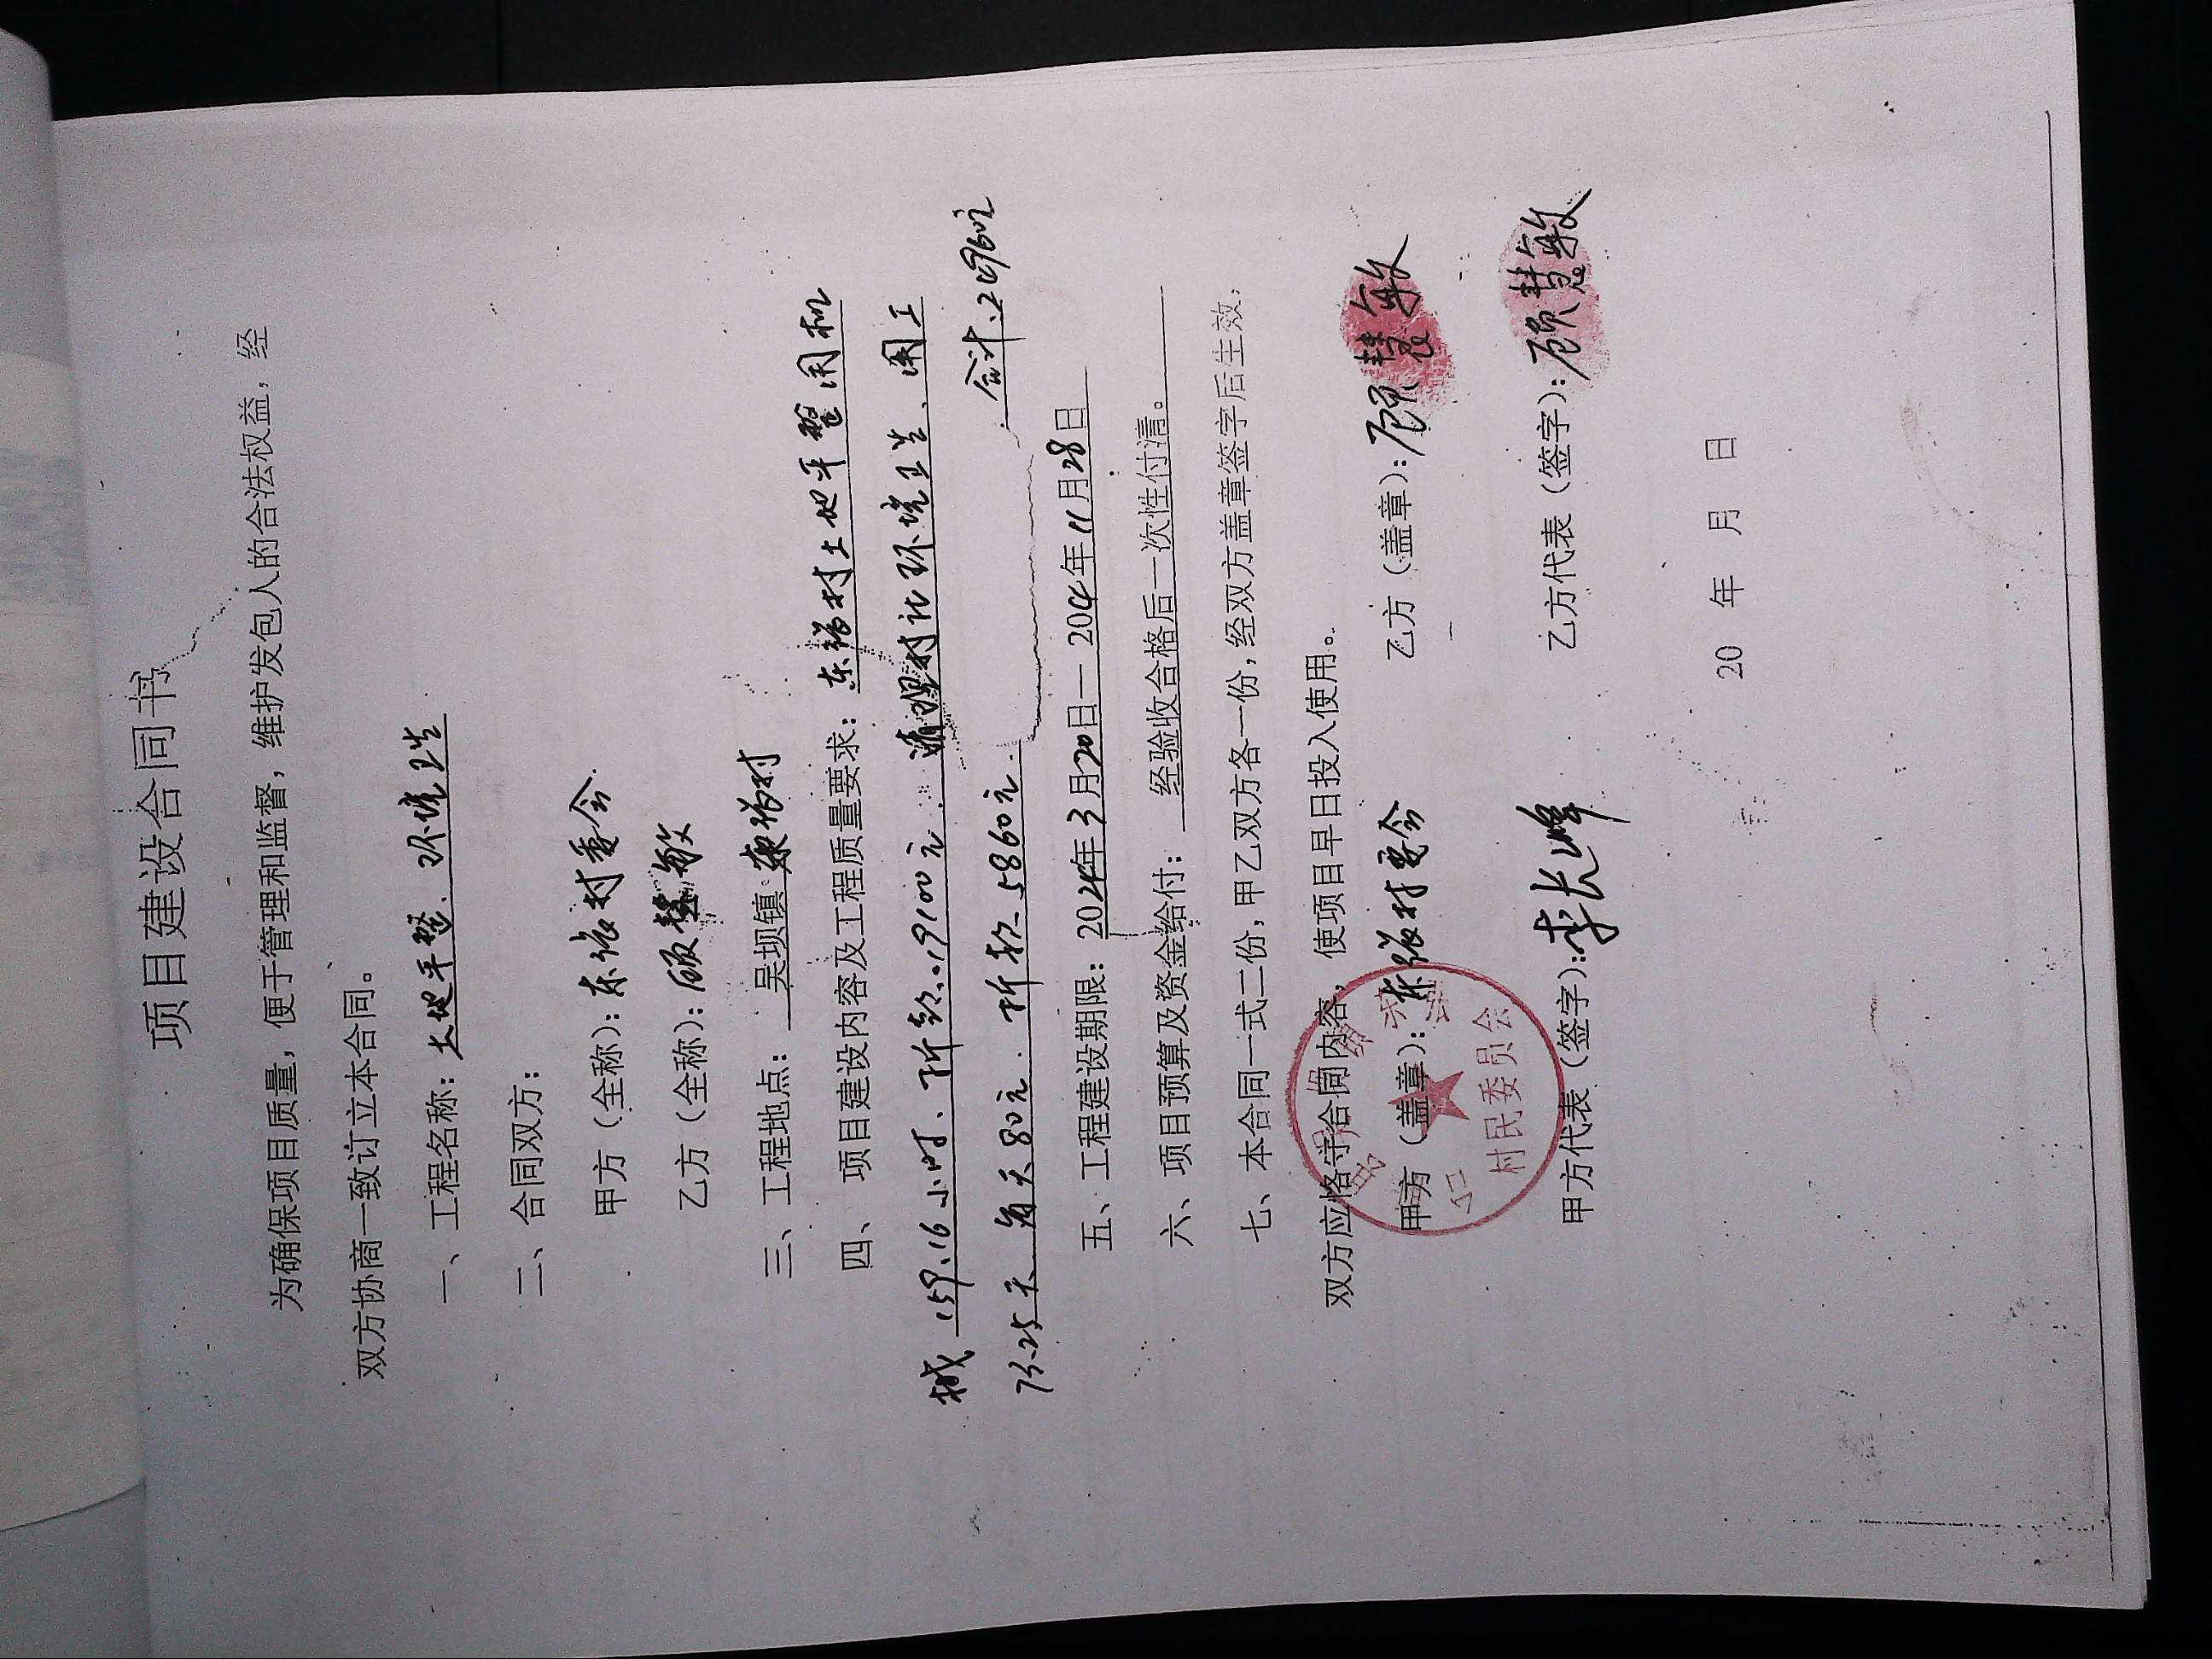 项目建设合同书
为确保项目质量，便于管理和监督，维护发包人的合法权益，经
双方协商一致订立本合同。
一、工程名称：土地平整、环境卫生
二、合同双方：
甲方（全称）：东张村委会
乙方（全称）：顾慧敏
三、工程地点：吴坝镇东张村
四、项目建设内容及工程质量要求：东张村土地平整用机
械159.16小时、折款:19100元 清理村北环境卫生、用工
73.25天 每天80元. 折款5860元. 合计:24960元
五、工程建设期限：2024年3月20日—2024年11月28日
六、项目预算及资金给付：经验收合格后一次性付清。
七、本合同一式二份，甲乙双方各一份，经双方盖章签字后生效，
双方应恪守合同内容，使项目早日投入使用。
甲方（盖章）：东张村委会 乙方（盖章）：顾慧敏
村民委员会
甲方代表（签字）：李长峰 乙方代表（签字）：顾慧敏
20 年 月 日